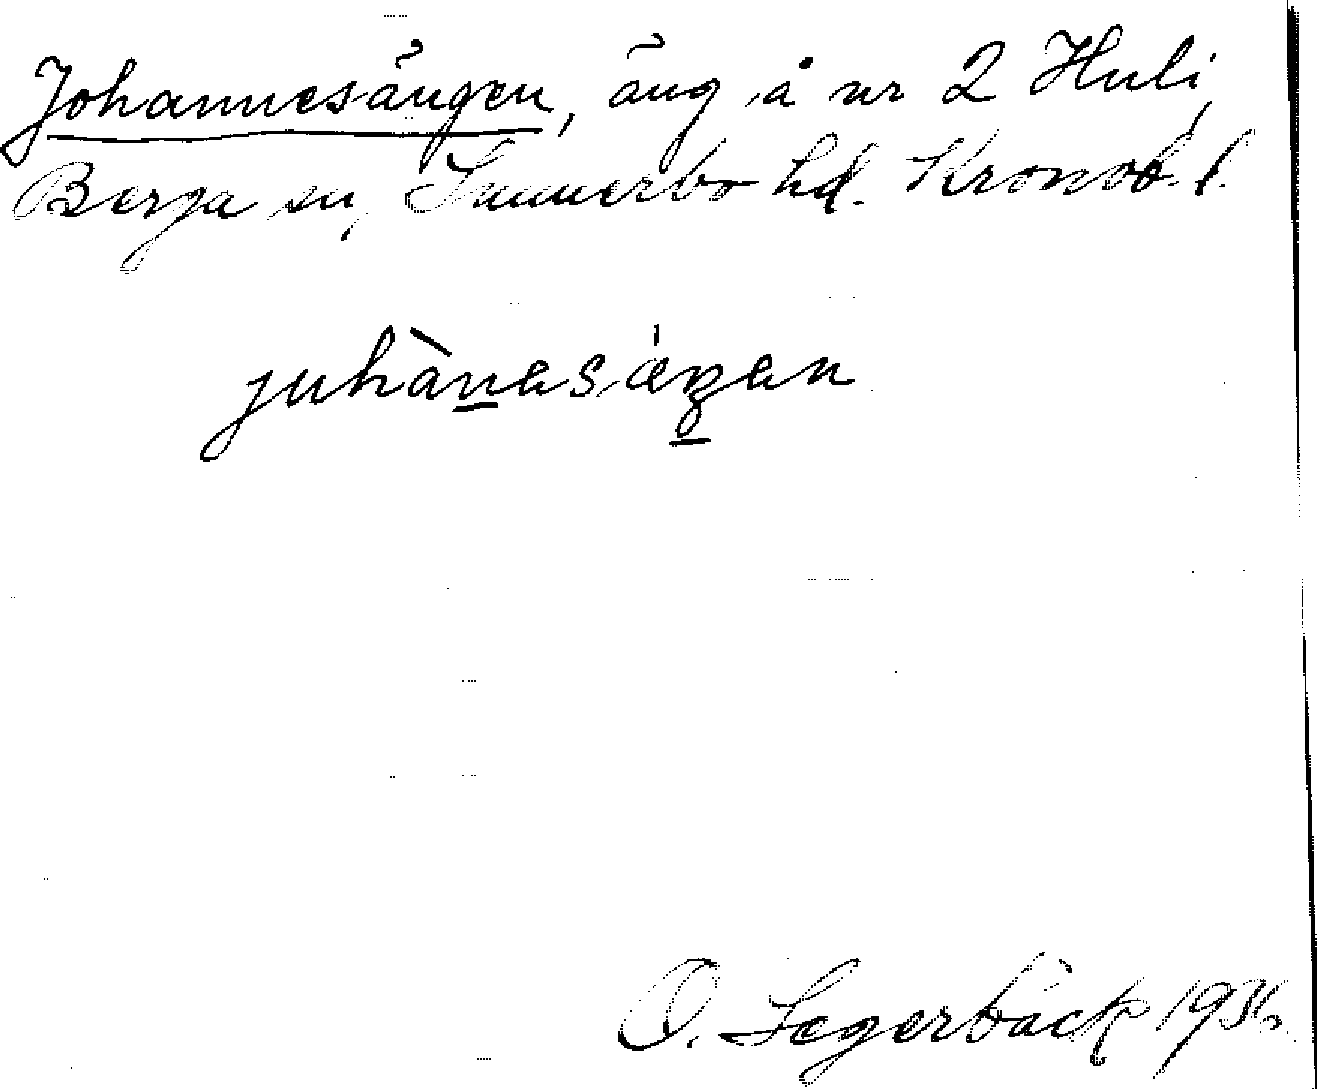 Johannesängen, äng å nr 2 Huli,
Berga sn, Sunnerbo hd. Kronob. l.
juhànesǽŋen
O. Segerbäck 1936